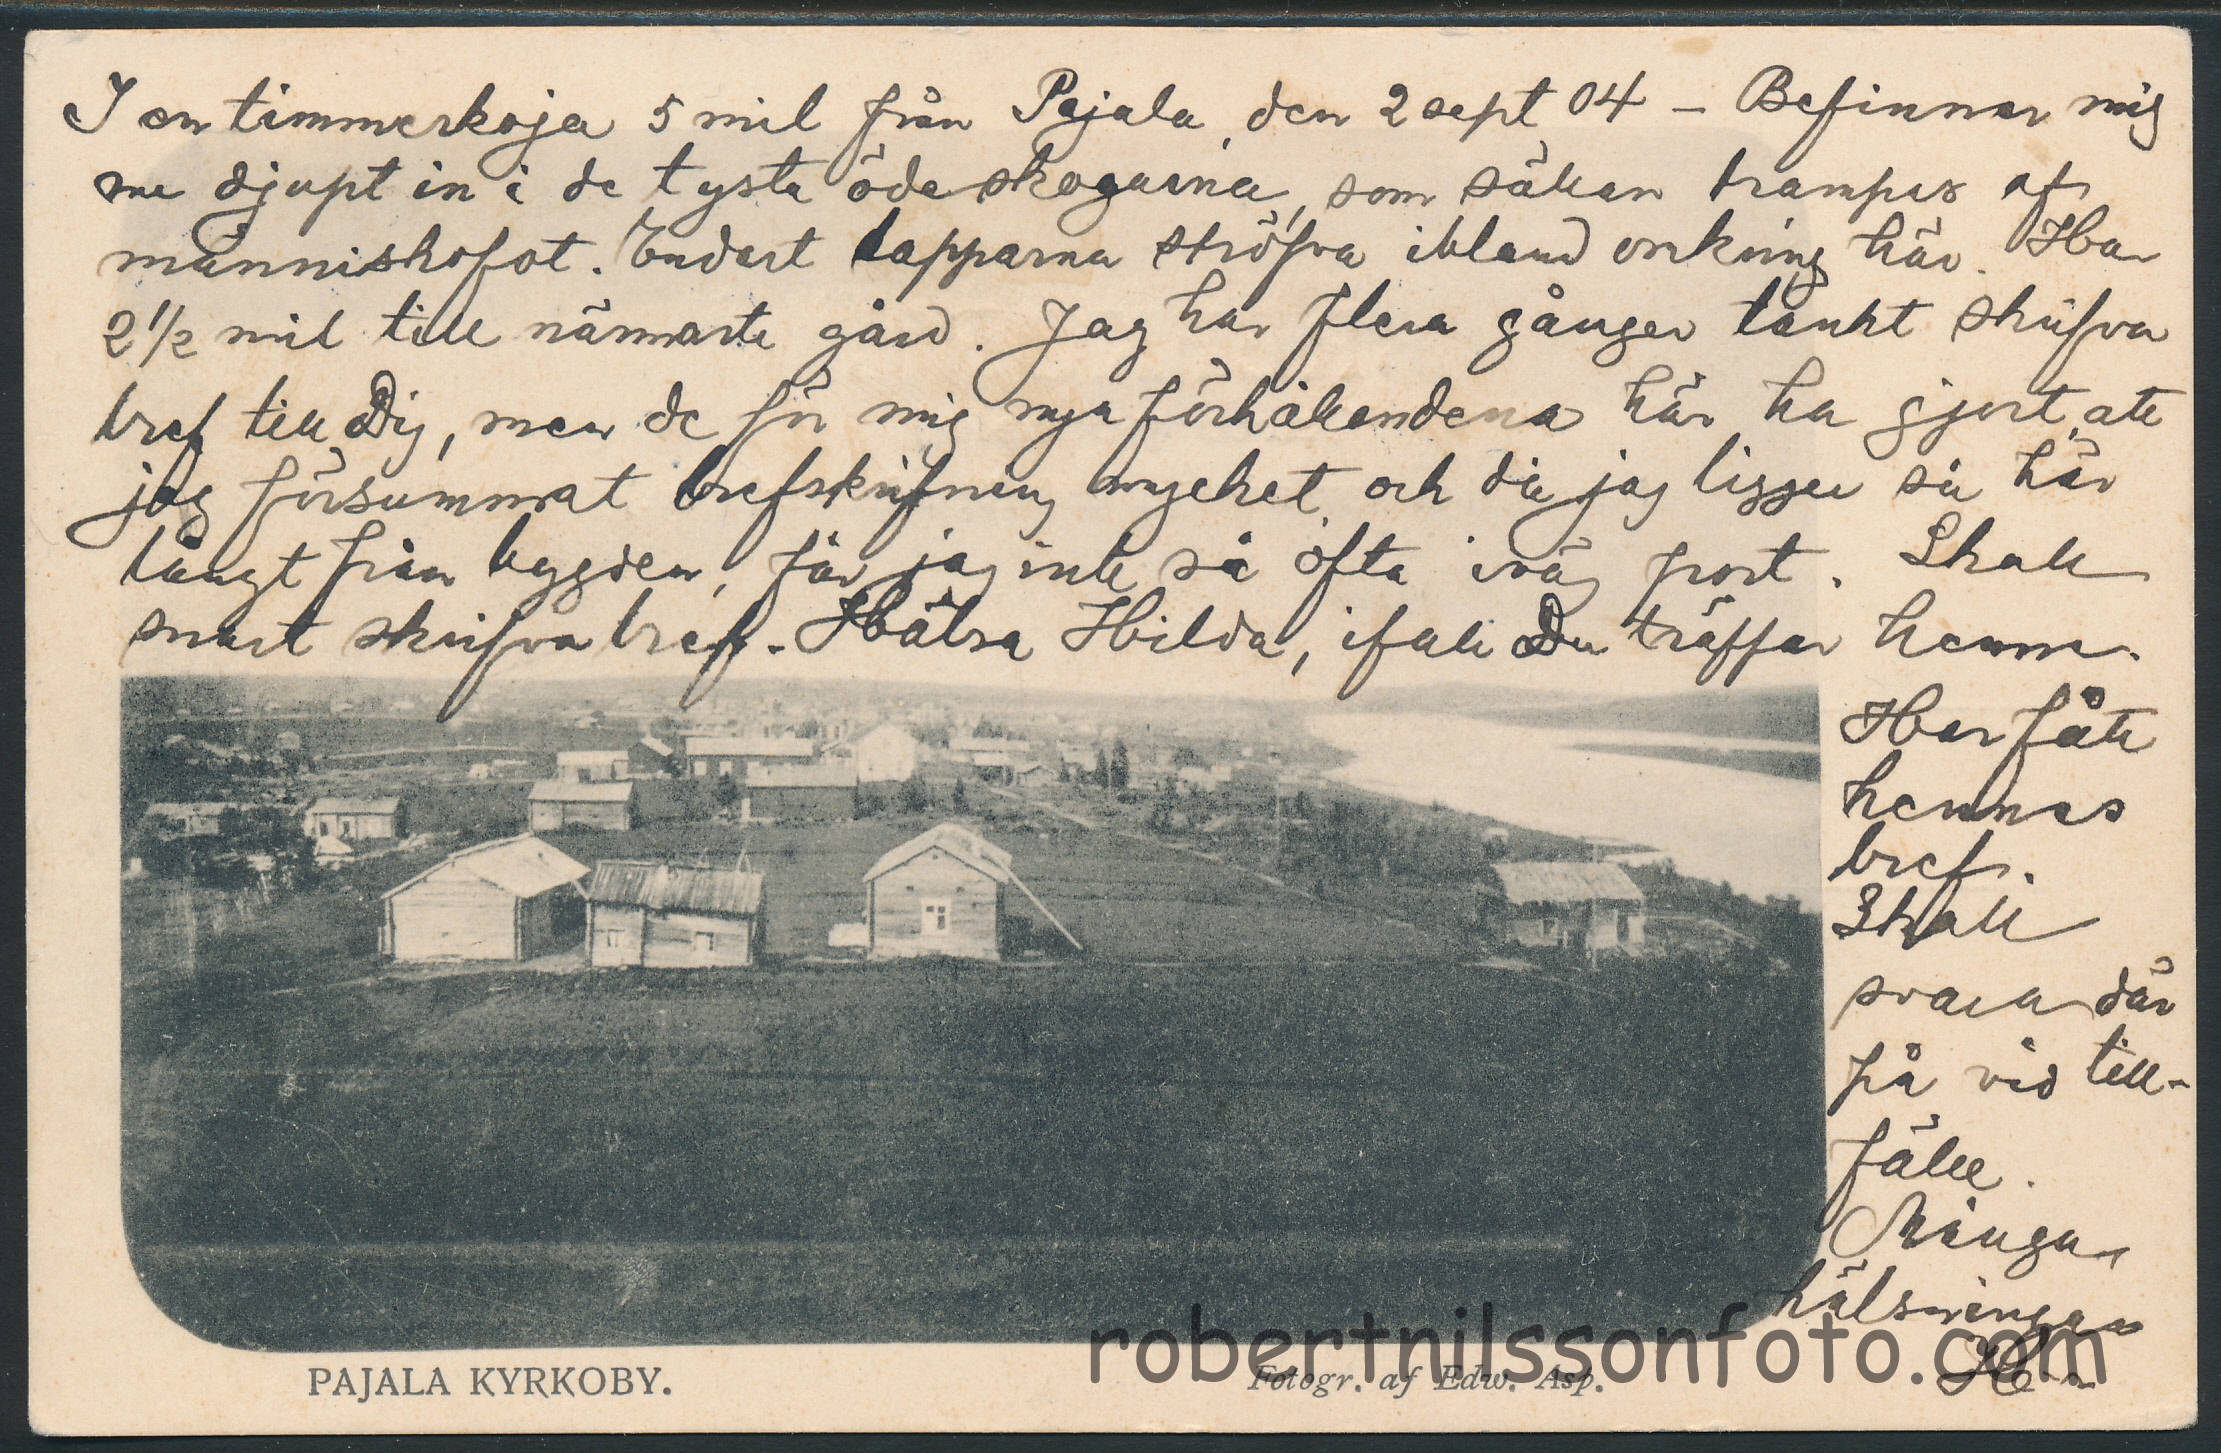 I en timmerkoja 5 mil från Pajala, den 2 sept 04 – Befinner mig
nu djupt in i de tysta ödeskogarna, som sällan trampas af
människofot. Endast lapparna ströfva ibland omkring här. Har
2 1/2 mil till närmaste gård. Jag har flera gånger tänkt skrifva
bref till Dig, men de för mig nya förhållandena här ha gjort, att
jag försummat brefskrifning mycket, och då jag ligger så här
långt från bygden, får jag inte så ofta iväg post. Skall
snart skrifva bref. Hälsa Hilda, ifall Du träffar henne.
Har fått
hennes
bref.
Skall
svara där
på vid till-
fälle.
Många
hälsningar
PAJALA KYRKOBY.
Fotogr. af Edw. Asp.
robertnilssonfoto.com